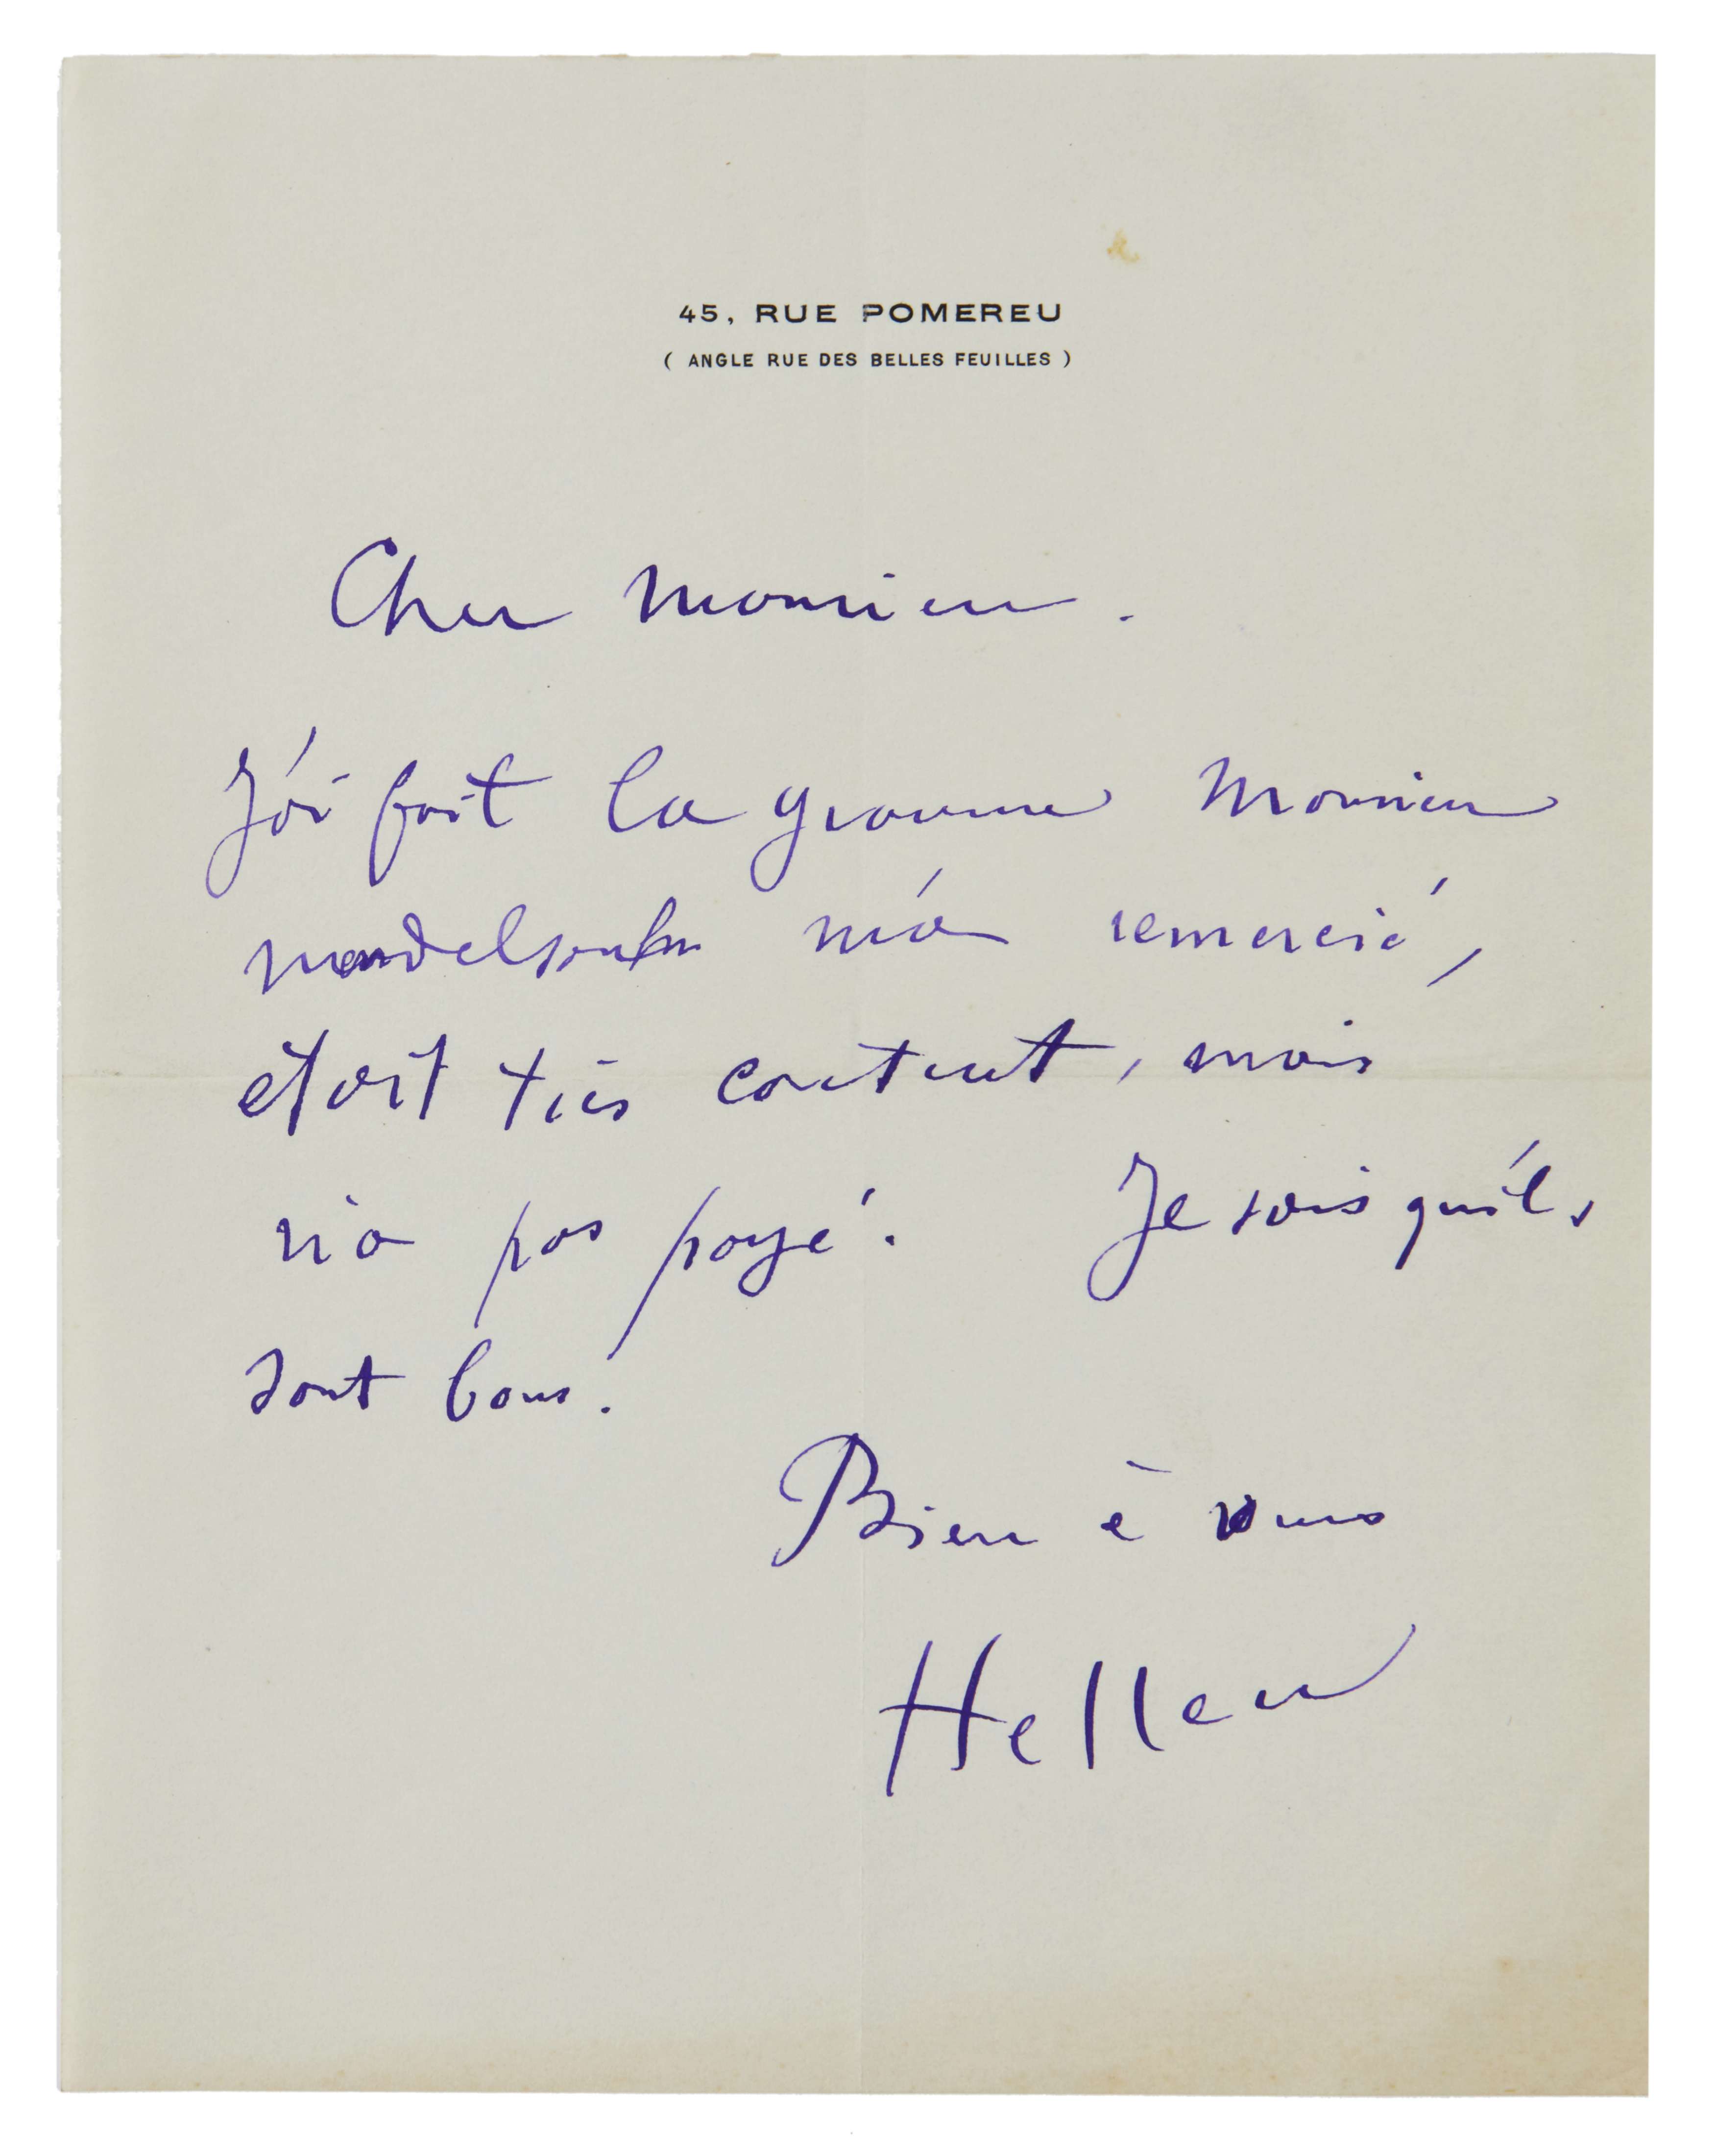 45, RUE POMEREU
( ANGLE RUE DES BELLES FEUILLES )
Cher Monsieur.
J'ai fait la gravure Monsieur
Mendelsohn m'a remercié,
était très content, mais
n'a pas payé. Je sais qu'ils
sont bons.
Bien à vous
Helleu